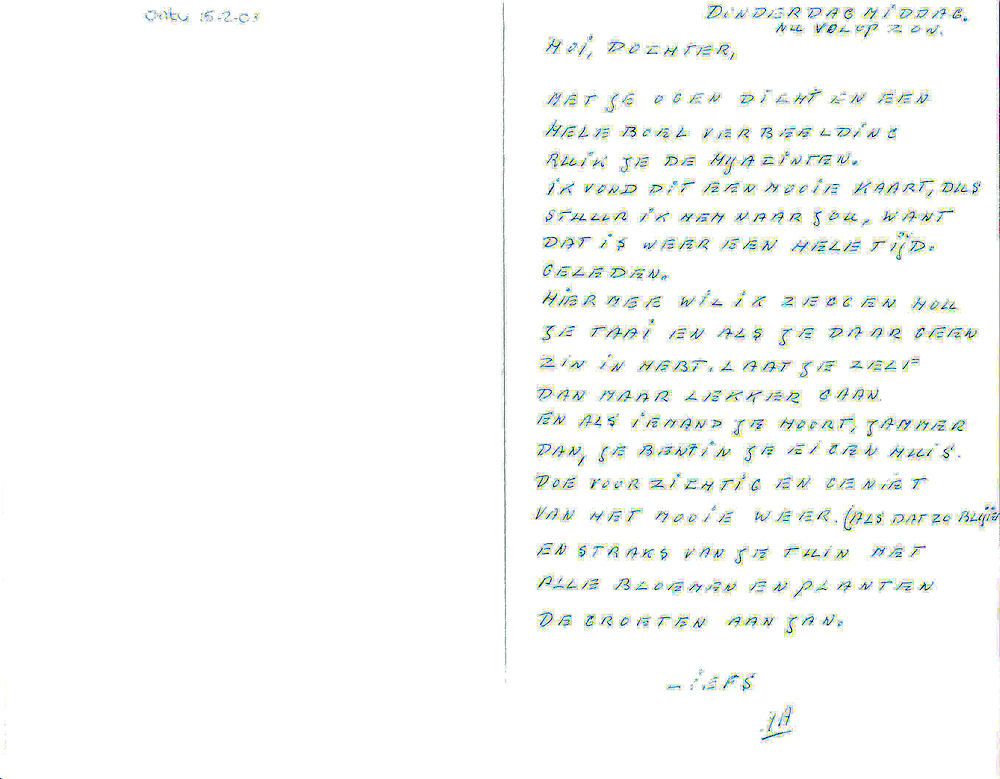 Ontv 15-2-03
DONDERDAG MIDDAG.
NU VOLOP ZON.
HOI, DOCHTER,
MET JE OGEN DICHT EN EEN
HELE BOEL VERBEELDING
RUIK JE DE HYAZINTEN.
IK VOND DIT EEN MOOIE KAART, DUS
STUUR IK HEM NAAR JOU, WANT
DAT IS WEER EEN HELE TIJD.
GELEDEN.
HIERMEE WIL IK ZEGGEN HOU
JE TAAI EN ALS JE DAAR GEEN
ZIN IN HEBT. LAAT JE ZELF
DAN MAAR LEKKER GAAN.
EN ALS IEMAND JE HOORT, JAMMER
DAN, JE BENT IN JE EIGEN HUIS.
DOE VOORZICHTIG EN GENIET
VAN HET MOOIE WEER. (ALS DAT ZO
EN STRAKS VAN JE TUIN MET
ALLE BLOEMEN EN PLANTEN
DE GROETEN AAN JAN.
LIEFS